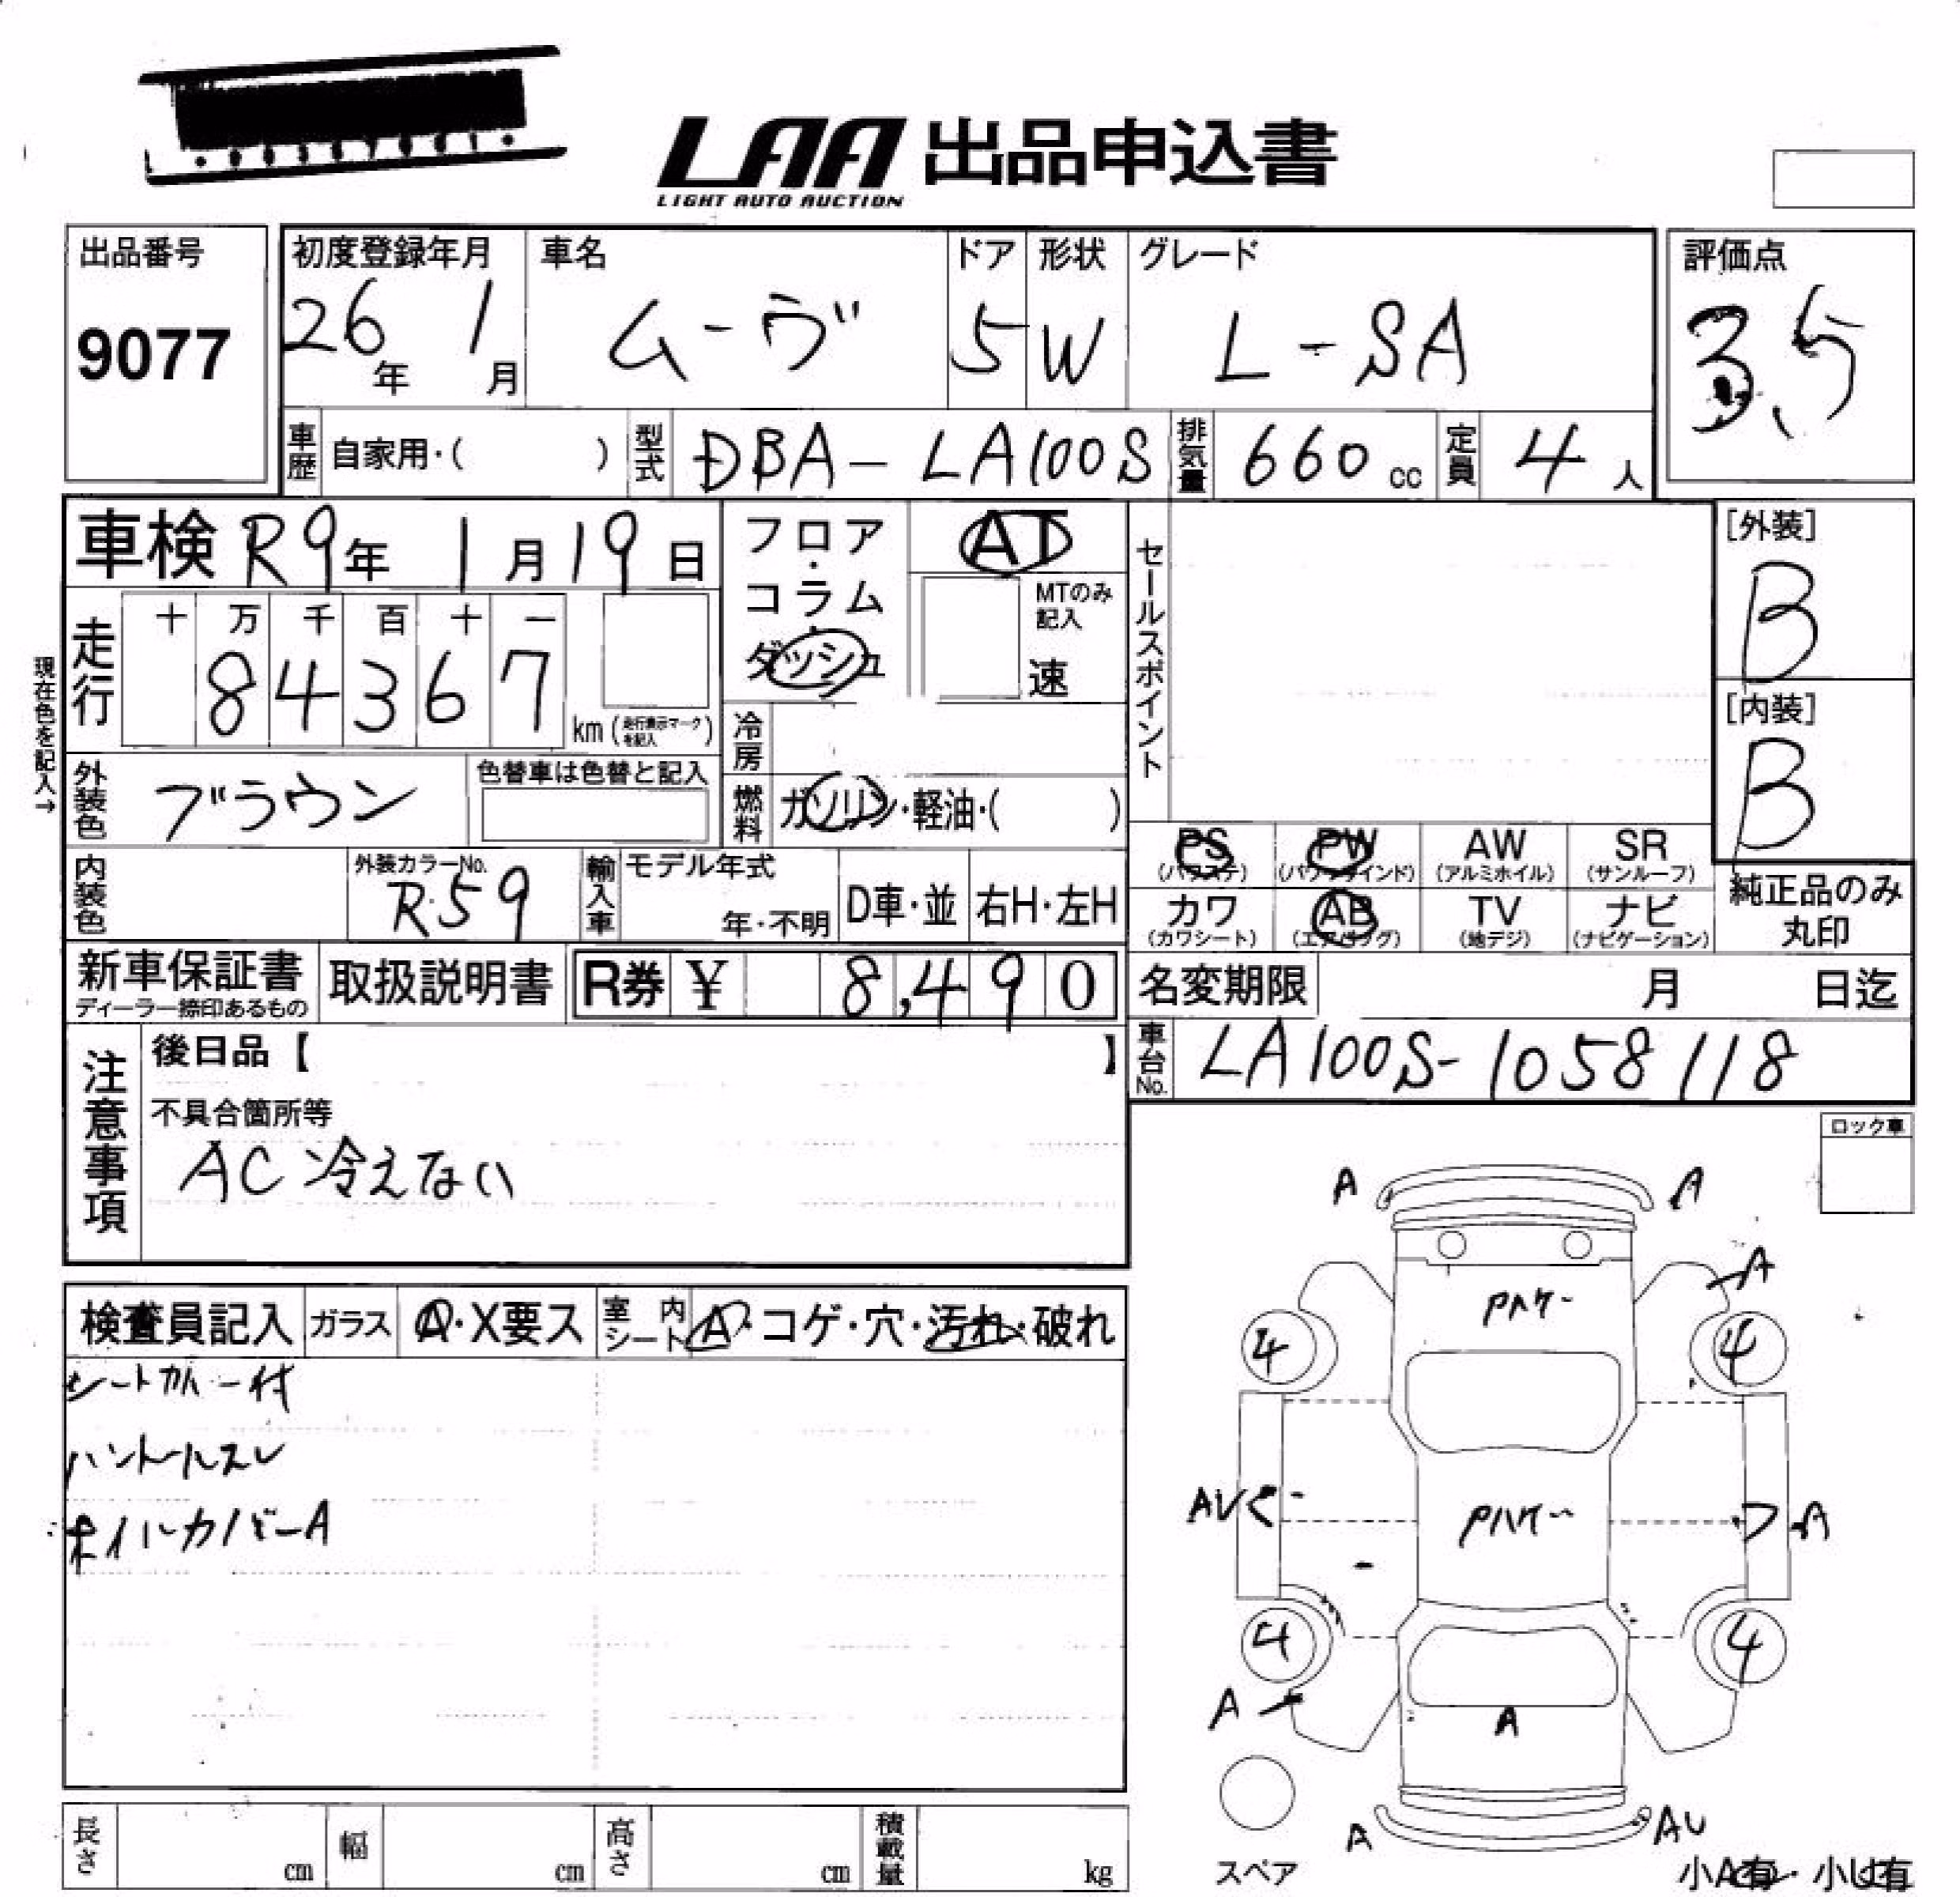 LAA 出品申込書
LIGHT AUTO AUCTION
出品番号 初度登録年月 車名 ドア 形状 グレード 評価点
9077 26年 1月 ムーヴ 5 W L-SA 3.5
車歴 自家用・( ) 型式 DBA-LA100S 排気量 660cc 定員 4人
車検 R9年 1月19日 フロア・コラム・ダッシュ AT セールスポイント [外装]
B
MTのみ記入
速
走行 十 万 千 百 十 一
84367 km (走行表示マークを記入)
現在色を記入→
[内装]
B
冷房
外装色 ブラウン 色替車は色替と記入 燃料 ガソリン・軽油・( )
PS PW AW SR
(パワステ) (パワーウインド) (アルミホイル) (サンルーフ)
内装色 外装カラーNo. R59 輸入車 モデル年式 年・不明 D車・並 右H・左H
カワ AB TV ナビ 純正品のみ
(カワシート) (エアバッグ) (地デジ) (ナビゲーション) 丸印
新車保証書 取扱説明書 R券 ¥ 8,490 名変期限 月 日迄
ディーラー捺印あるもの
注意事項 後日品【 】 車台No. LA100S-1058118
不具合箇所等
AC冷えない
ロック車
A A
A
検査員記入 ガラス A・X要ス 室内シート A・コゲ・穴・汚れ・破れ
Pハゲー
4 4
シートカバー付
ハンドルスレ
ホイルカバーA
AU Pハゲー A
4 4
A A
A AU
スペア 小A有・小U有
長さ cm 幅 cm 高さ cm 積載量 kg